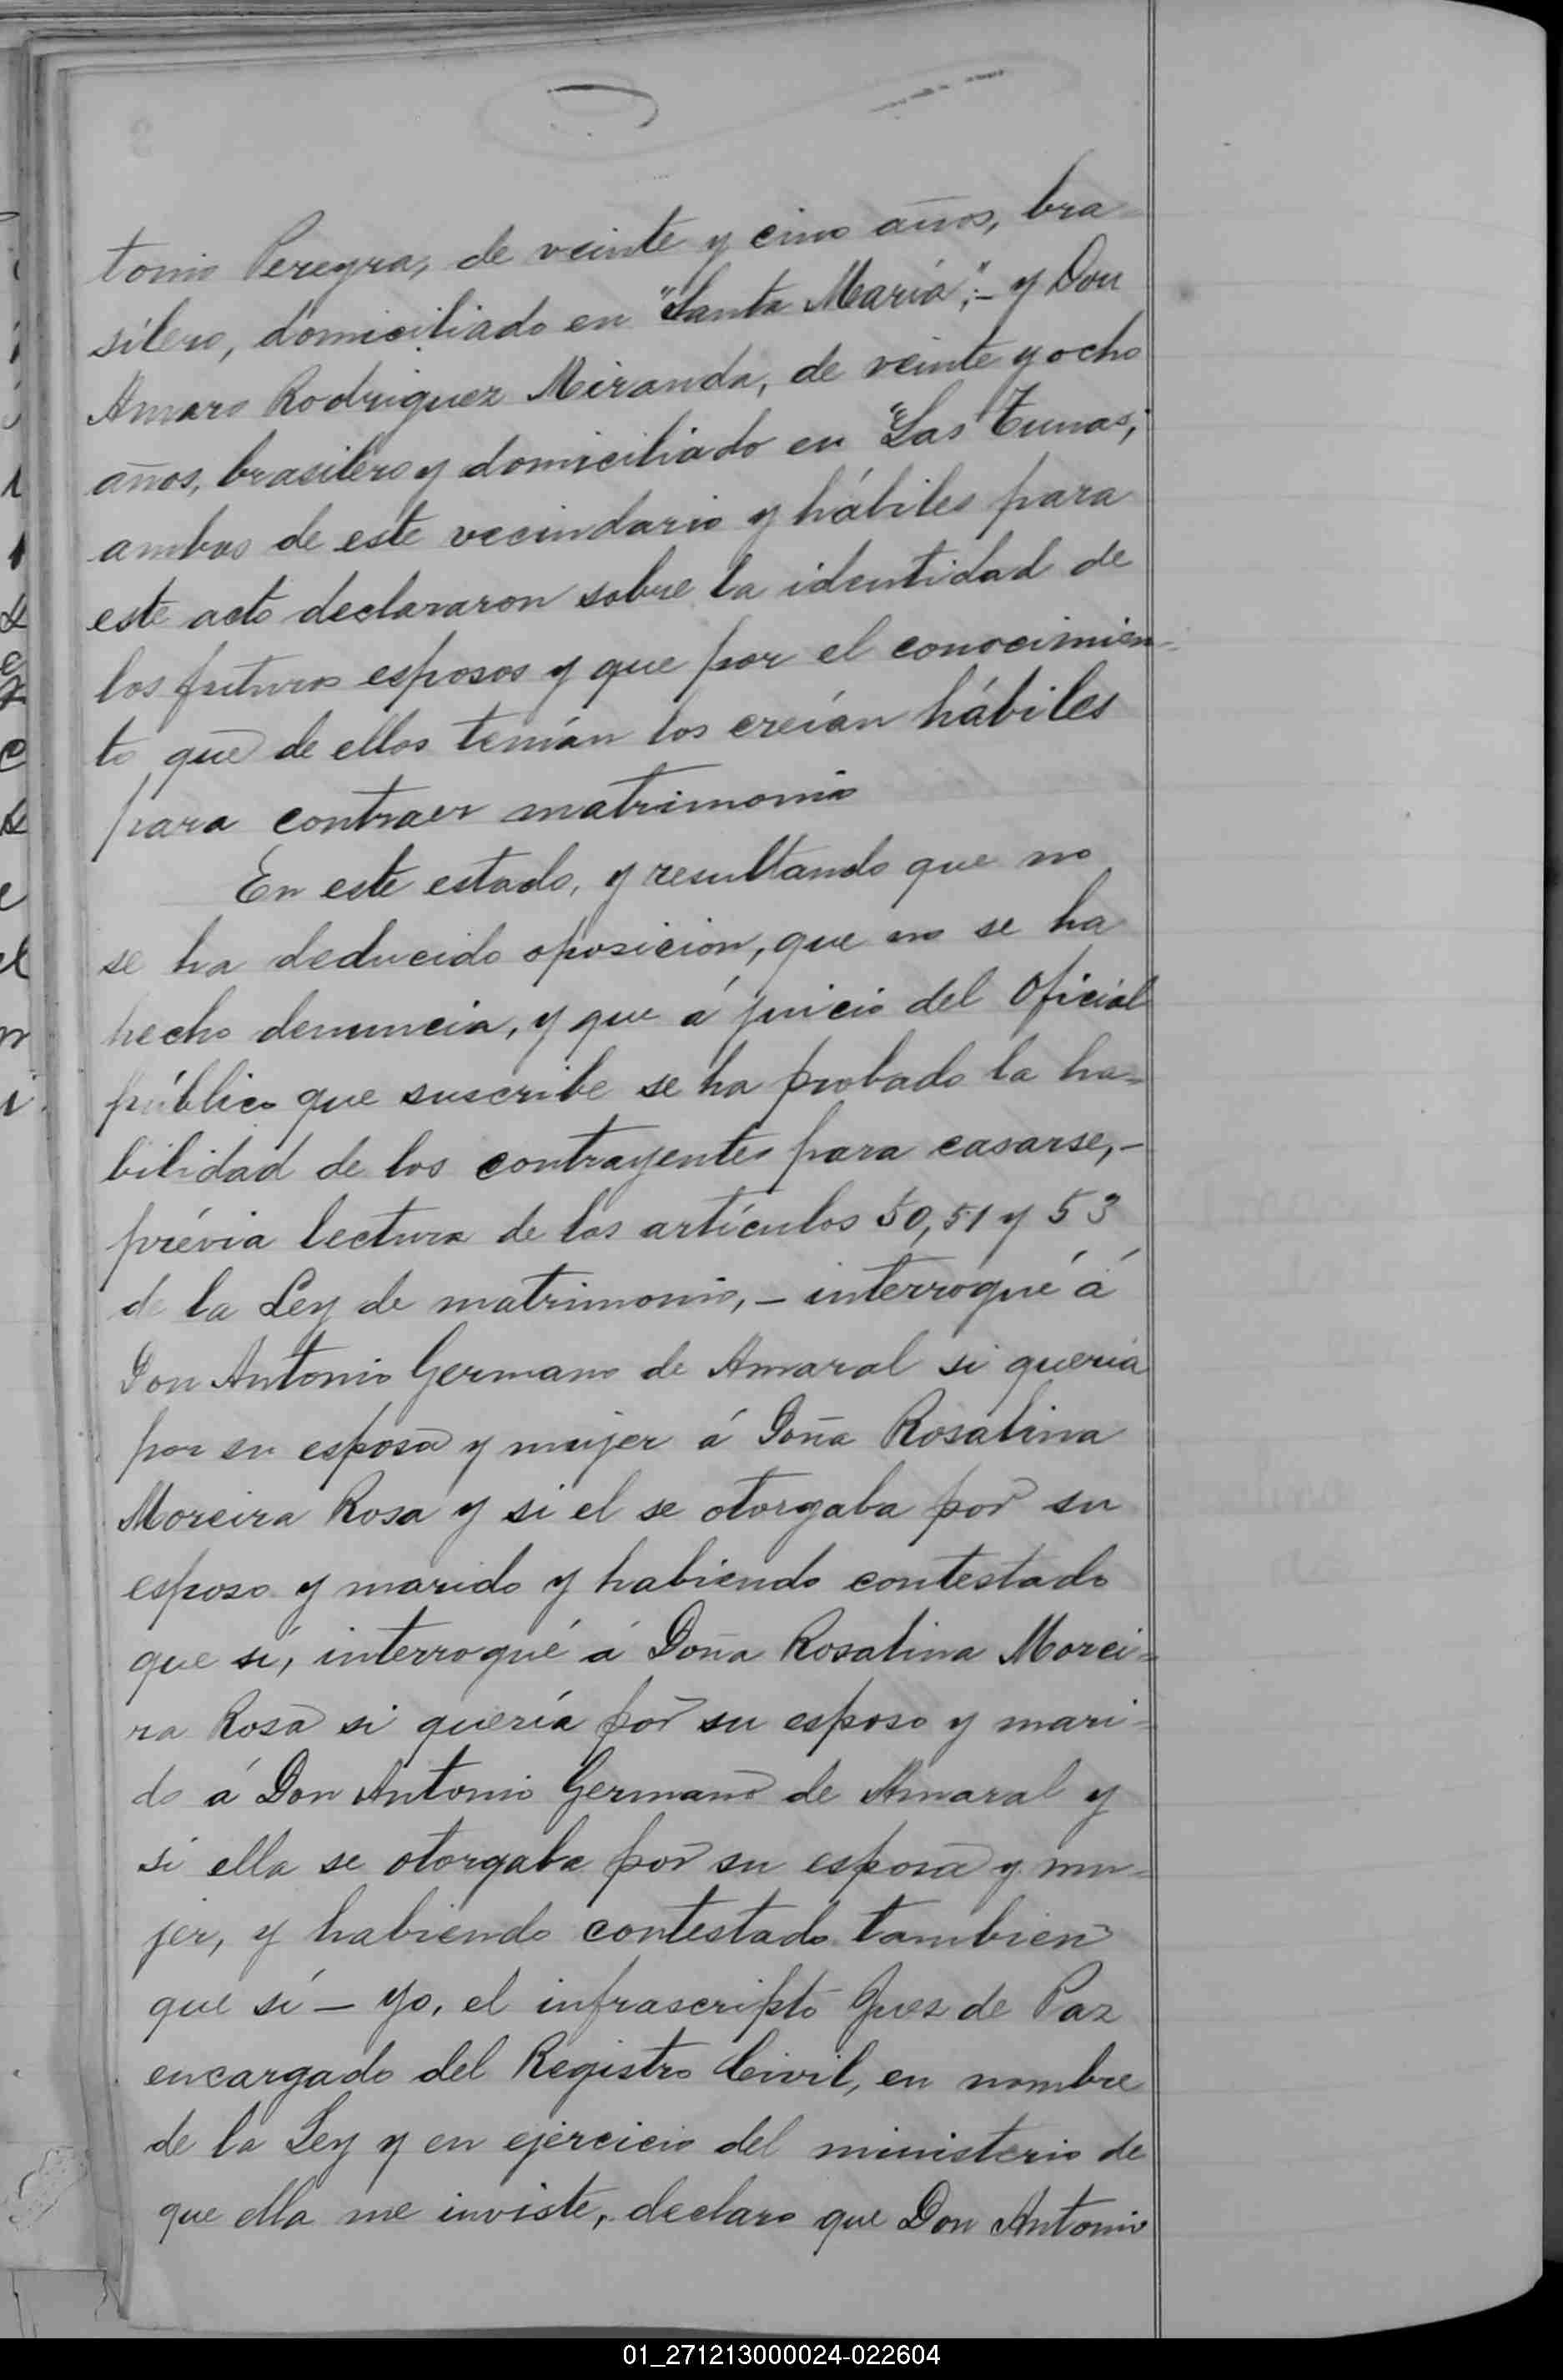 tonio Pereyra, de veinte y cinco años, bra-
silero, domiciliado en "Santa María";- y Don
Amaro Rodriguez Miranda, de veinte y ocho
años, brasilero y domiciliado en "Las Tunas",
ambos de este vecindario y hábiles para
este acto declararon sobre la identidad de
los futuros esposos y que por el conocimien-
to que de ellos tenían los creían hábiles
para contraer matrimonio
En este estado, y resultando que no
se ha deducido oposicion, que no se ha
hecho denuncia, y que á juicio del Oficial
público que suscribe se ha probado la ha=
bilidad de los contrayentes para casarse,-
prévia lectura de los artículos 50, 51 y 53
de la Ley de matrimonio, - interrogué á
Don Antonio Germano de Amaral si quería
por su esposa y mujer á Doña Rosalina
Moreira Rosa y si el se otorgaba por su
esposo y marido y habiendo contestado
que sí, interrogué á Doña Rosalina Morei=
ra Rosa si quería por su esposo y mari=
do á Don Antonio Germano de Amaral y
si ella se otorgaba por su esposa y mu=
jer, y habiendo contestado tambien
que sí - Yo, el infrascripto Juez de Paz
encargado del Registro Civil, en nombre
de la Ley y en ejercicio del ministerio de
que ella me inviste, declaro que Don Antonio
01_271213000024-022604